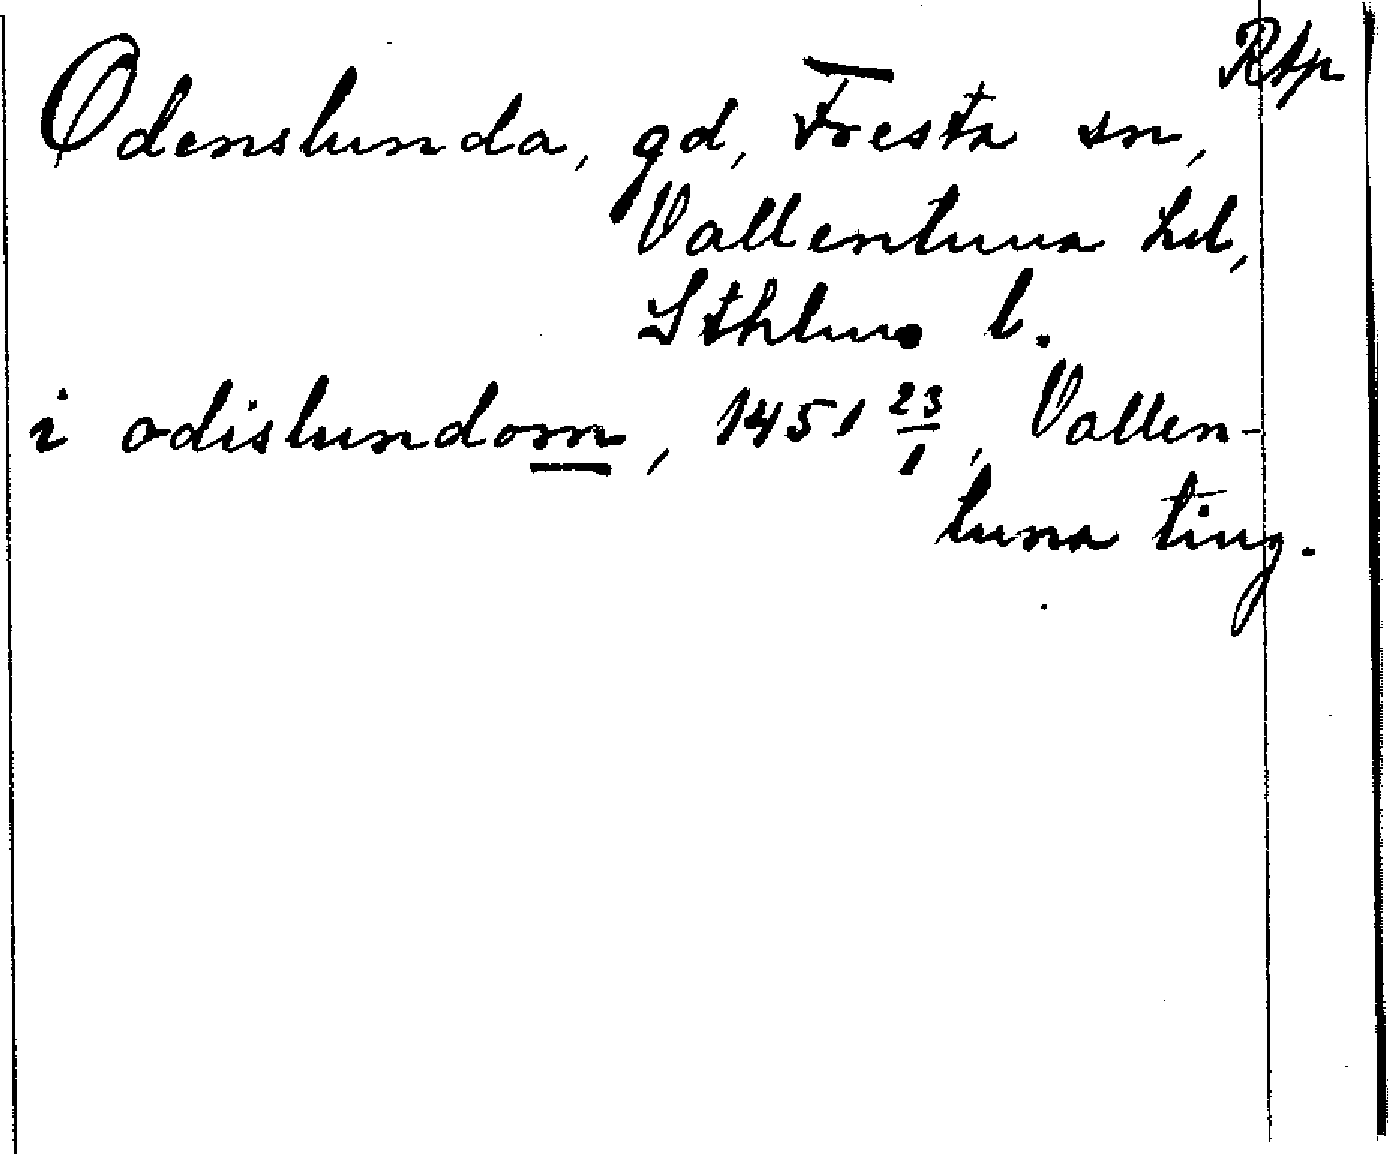 Rtp
Odenslunda, gd, Fresta sn,
Vallentuna hd,
Sthlms l.
i odislundom, 1451 23/1, Vallen-
tuna ting.